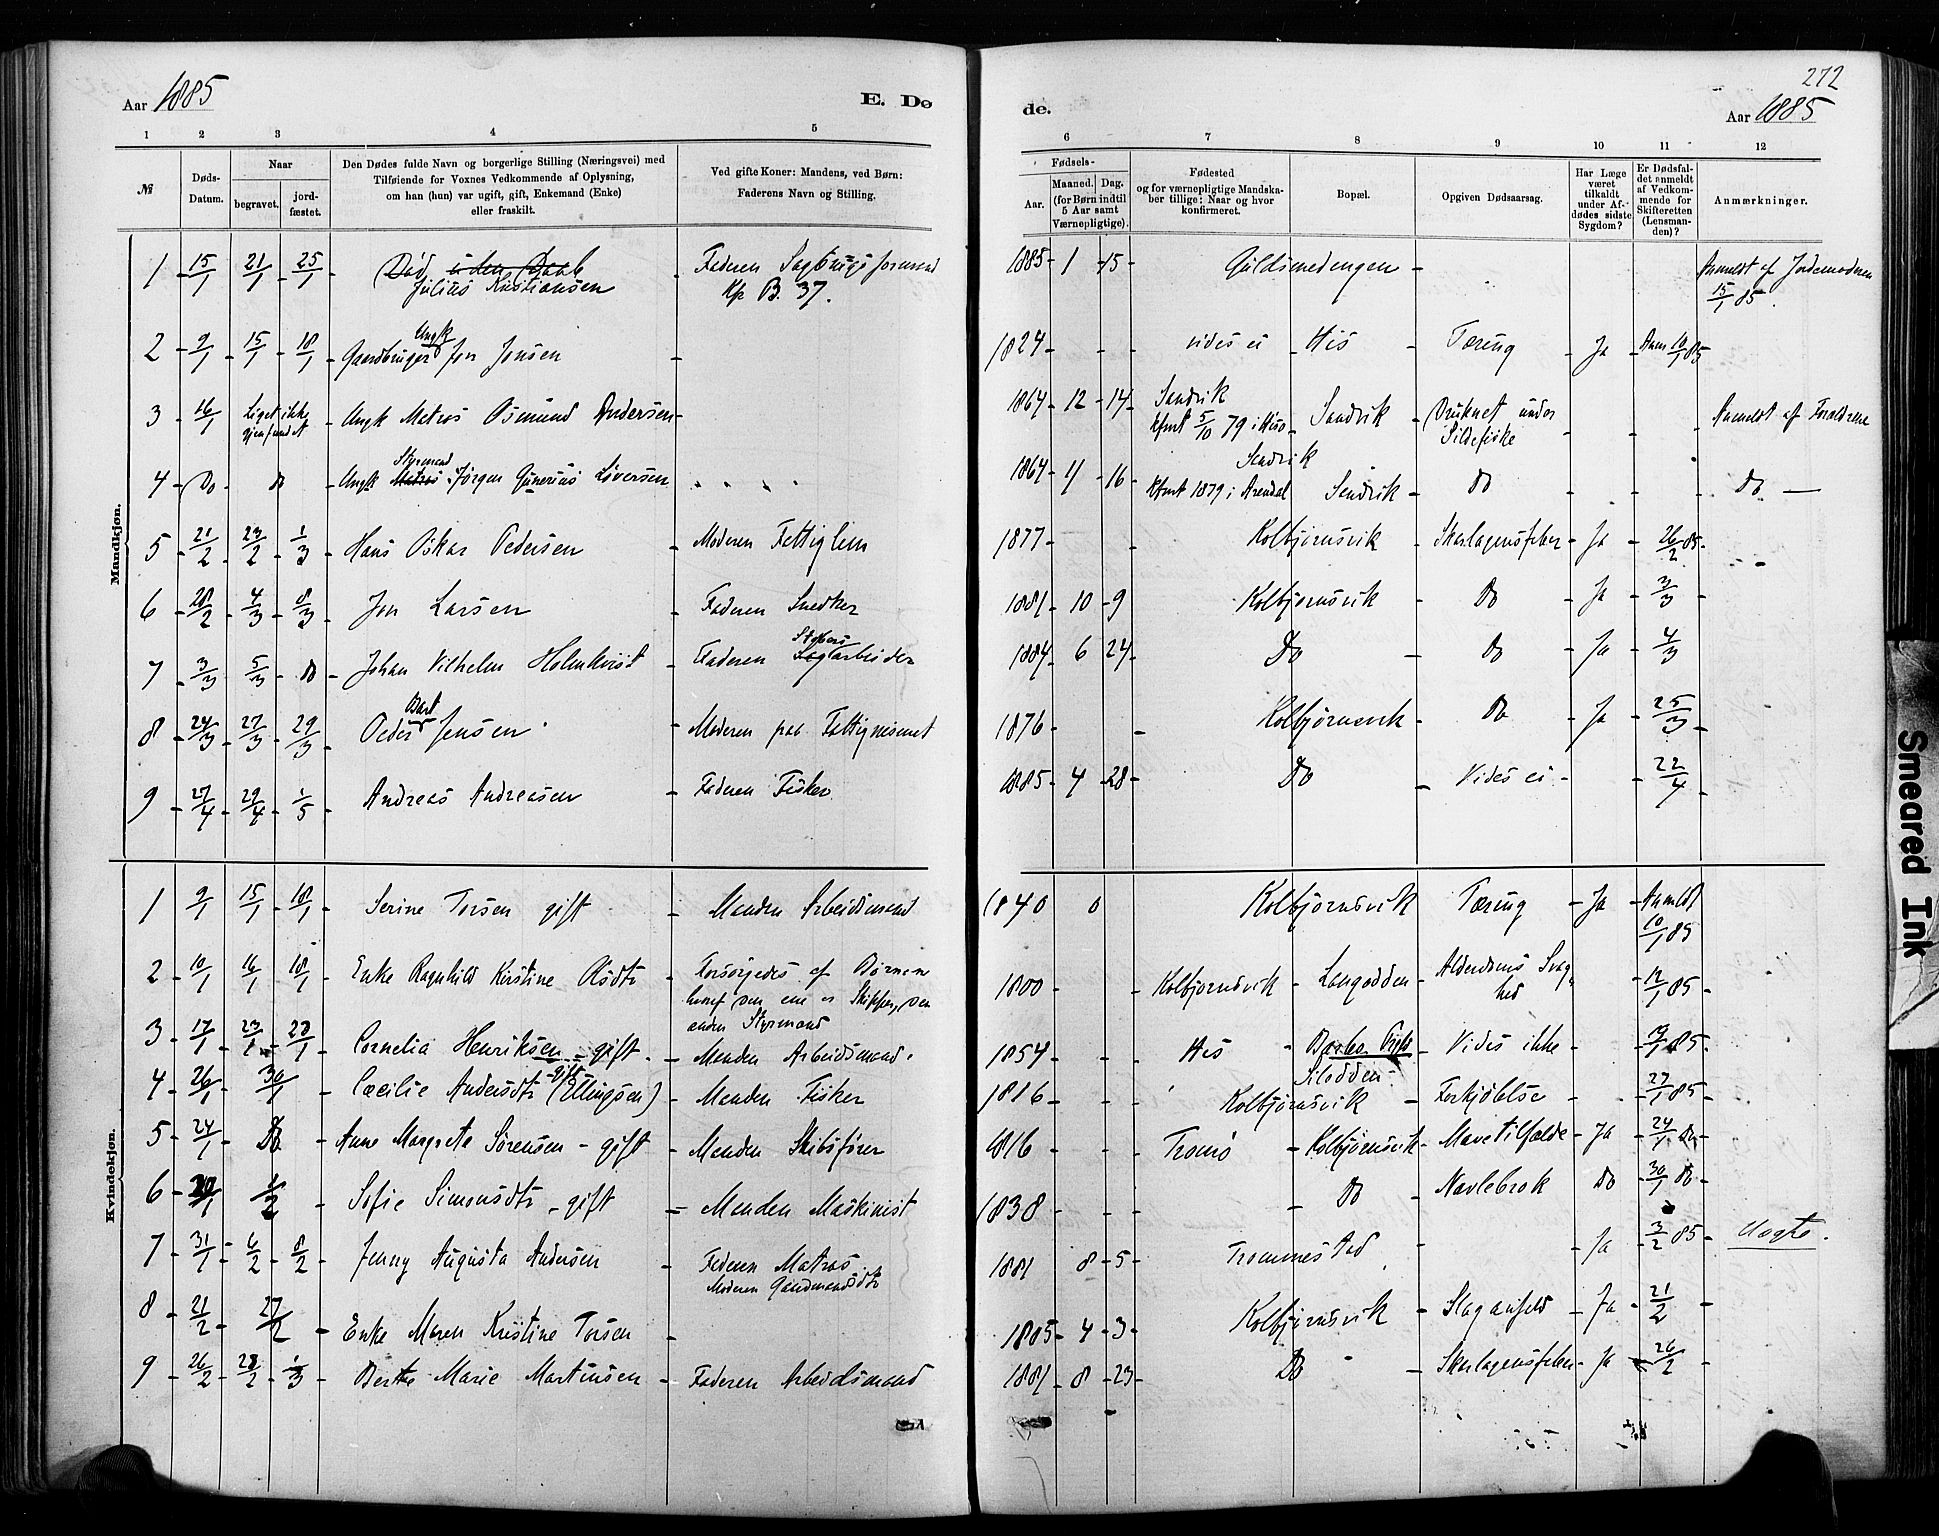 Aar 1885
E. Dø
de.
272
Aar 1885
1 2 3 4 5
6 7 8 9 10 11 12
№
Døds-Datum.
Naar
begravet.
jord-fæstet.
Den Dødes fulde Navn og borgerlige Stilling (Næringsvei) med
Tilføiende for Voxnes Vedkommende af Oplysning,
om han (hun) var ugift, gift, Enkemand (Enke)
eller fraskilt.
Ved gifte Koner: Mandens, ved Børn:
Faderens Navn og Stilling.
Fødsels-
Aar.
Maaned. Dag.
(for Børn indtil
5 Aar samt
Værnepligtige).
Fødested
og for værnepligtige Mandska-
ber tillige: Naar og hvor
konfirmeret.
Bopæl.
Opgiven Dødsaarsag.
Har Læge
været
tilkaldt
under Af-
dødes sidste
Sygdom?
Er Dødsfal-
det anmeldt
af Vedkom-
mende for
Skifteretten
(Lensman-
den)?
Anmærkninger.
Mandkjøn.
1 15/1 21/1 25/1 Død uden Daab Faderen Sagbrugsformand 1885 1 15 Guldsmedengen Anmeldt af Jordemodren
Julius Kristiansen Kp B. 37. 15/1 85.
Ungk
2 9/1 15/1 18/1 Gaardbruger Jon Jensen 1824 vides ei His Tæring Ja Anm 10/1 85
3 16/1 Liget ikke Ungk Matros Osmund Andersen 1864 12 14 Sandvik Sandvik Druknet under Anmeldt af Forældrene
gjenfundet Kfmt 5/10 79 i Hisø Sildefiske
Styrmand Sandvik
4 Do Do Ungk Matros Jørgen Gunerius Siversen 1864 11 16 Kfmt 1879 i Arendal Sandvik Do Do
5 21/2 23/2 1/3 Hans Oskar Pedersen Moderen Fattiglem 1877 Kolbjørnsvik Skarlagensfeber Ja 26/2 85
6 28/2 4/3 8/3 Jon Larsen Faderen Snedker 1881 10 9 Kolbjørnsvik Do Ja 3/3
7 3/3 5/3 Do Johan Vilhelm Holmkvist Faderen Sagarbeider 1884 6 24 Do Do Ja 4/3
8 24/3 27/3 29/3 Peder Jensen Moderen paa Fattigvæsenet 1876 Kolbjørnsvik Do Ja 25/3
9 27/4 29/4 1/5 Andreas Andreasen Faderen Fisker 1885 4 28 Do Vides ei 22/4
Kvindekjøn.
1 9/1 15/1 18/1 Serine Torsen gift Manden Arbeidsmand 1840 0 Kolbjørnsvik Tæring Ja Anmeldt
10/1 85
2 10/1 16/1 18/1 Enke Ragnhild Kirstine Olsdtr Forsørgedes af Børnene 1800 Kolbjørnsvik Langodden Alderdoms Svag- 12/1 85
hvoraf den ene er Skipper, den hed
anden Styrmand
3 17/1 23/1 23/1 Cornelia Henriksen gift Manden Arbeidsmand 1854 His Barbo Vides ikke 19/1 85
gift Silodden
4 26/1 30/1 Cæcilie Andersdtr (Ellingsen) Manden Fisker 1816 Kolbjørnsvik Forkjølelse 27/1 85
5 24/1 Do Anne Margrete Sørensen - gift Manden Skibsfører 1816 Tromø Kolbjørnsvik Mavetilfælde Ja 24/1 Do
6 1/2 Sofie Simonsdtr - gift Manden Maskinist 1838 Do Navlebrok Do 30/1 Do
7 31/1 6/2 8/2 Jenny Augusta Andersen Faderen Matros 1881 8 5 Trommestad Ja 3/2 85 Uægte.
Moderen
8 21/2 27/2 Enke Maren Kristine Torsen 1805 4 3 Kolbjørnsvik Slaganfald Ja 21/2
9 26/2 28/2 1/3 Berthe Marie Martinsen Faderen Arbeidsmand 1881 8 23 Do Skarlagensfeber Ja 26/2
Smeared Ink